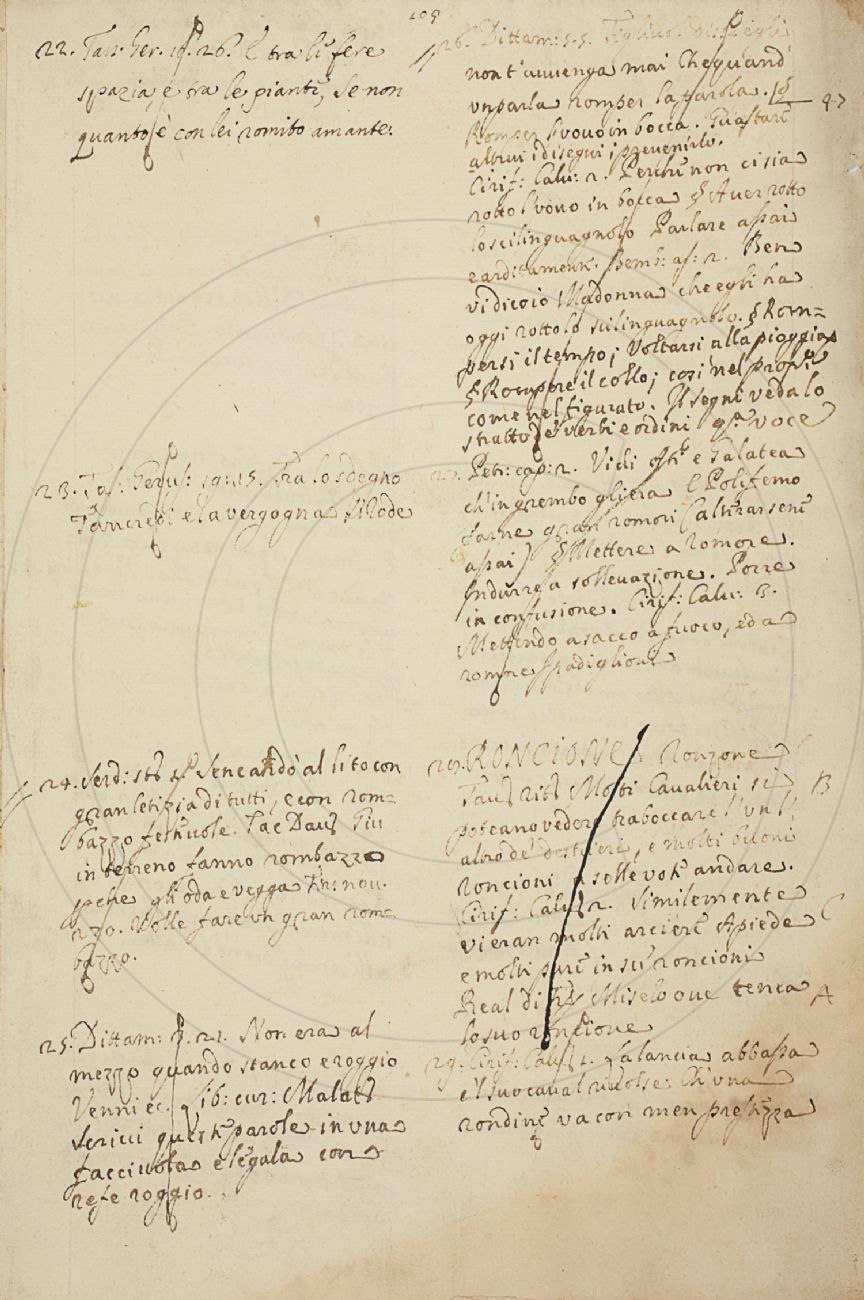 109
22. Tass. Ger. 14. 26. E tra li fere
spazia, e tra le piante, Se non
quanto è con lei romito amante.
23. Tas: Gerus: 19: 15. Tra lo sdegno
Tancredi e la vergogna si rode
24. Serd: st: Se ne andò al lito con
gran letizia di tutti, e con rom=
bazzo festevole. Tac Dav: Piu
in terreno fanno rombazzo
pche gli oda e vegga
270. Volle fare un gran rom=
bazzo.
25. Dittam: 3. 21. Non era al
mezzo quando stanco e roggio
Venni ec. Lib: cur: Malatt
Scrivi queste parole in una
facciuola e legala con
refe roggio.
26. Dittam: 5. 5. Figliuol diss'egli
non t'avvenga mai Che quand'
un parla romper la parola. 47
Romper l'vovo in bocca. Guastare
altrui i disegni i prevenirlo.
Cirif: Calv: 2. Perche non ci sia
rotto l'vovo in bocca § Aver rotto
lo scilinguagnolo Parlare assai
e arditamente. Bemb: as: 2. Ben
vi dico io Madonna che egli ha
oggi rotto lo scilinguagnolo. § Rom=
persi il tempo; Voltarsi alla pioggia
§ Rompere il collo; così nel prop
come nel figurato. Il segni veda lo
stratto de' verbi e ordini qta voce
27. Petr: cap: 2. Vidi e Galatea
ch'in grembo gli era E Polifemo
farne gran romori
assai) § Mettere a romore.
Indurre a sollevazione. Porre
in confusione. Cirif: Calv: 3.
Mettendo a sacco a fuoco, ed a
romore i padiglioni
RONCIONE Ronzone
Tav: Rit: Molti Cavalieri si B
poteano vedere traboccare l'un
altro de' destrieri, e molti buoni
roncioni a selle vote andare.
Cirif: Calv: 2. Similemente C
vi eran molti arcieri Apiede
e molti pure in su' roncioni
Real di Fr: Miselo ove tenea A
lo suo roncione
29. Cirif: Calv: 1. La lancia abbassa
e 'l suo caval rivolse: Ch'una
rondine va con men prestezza